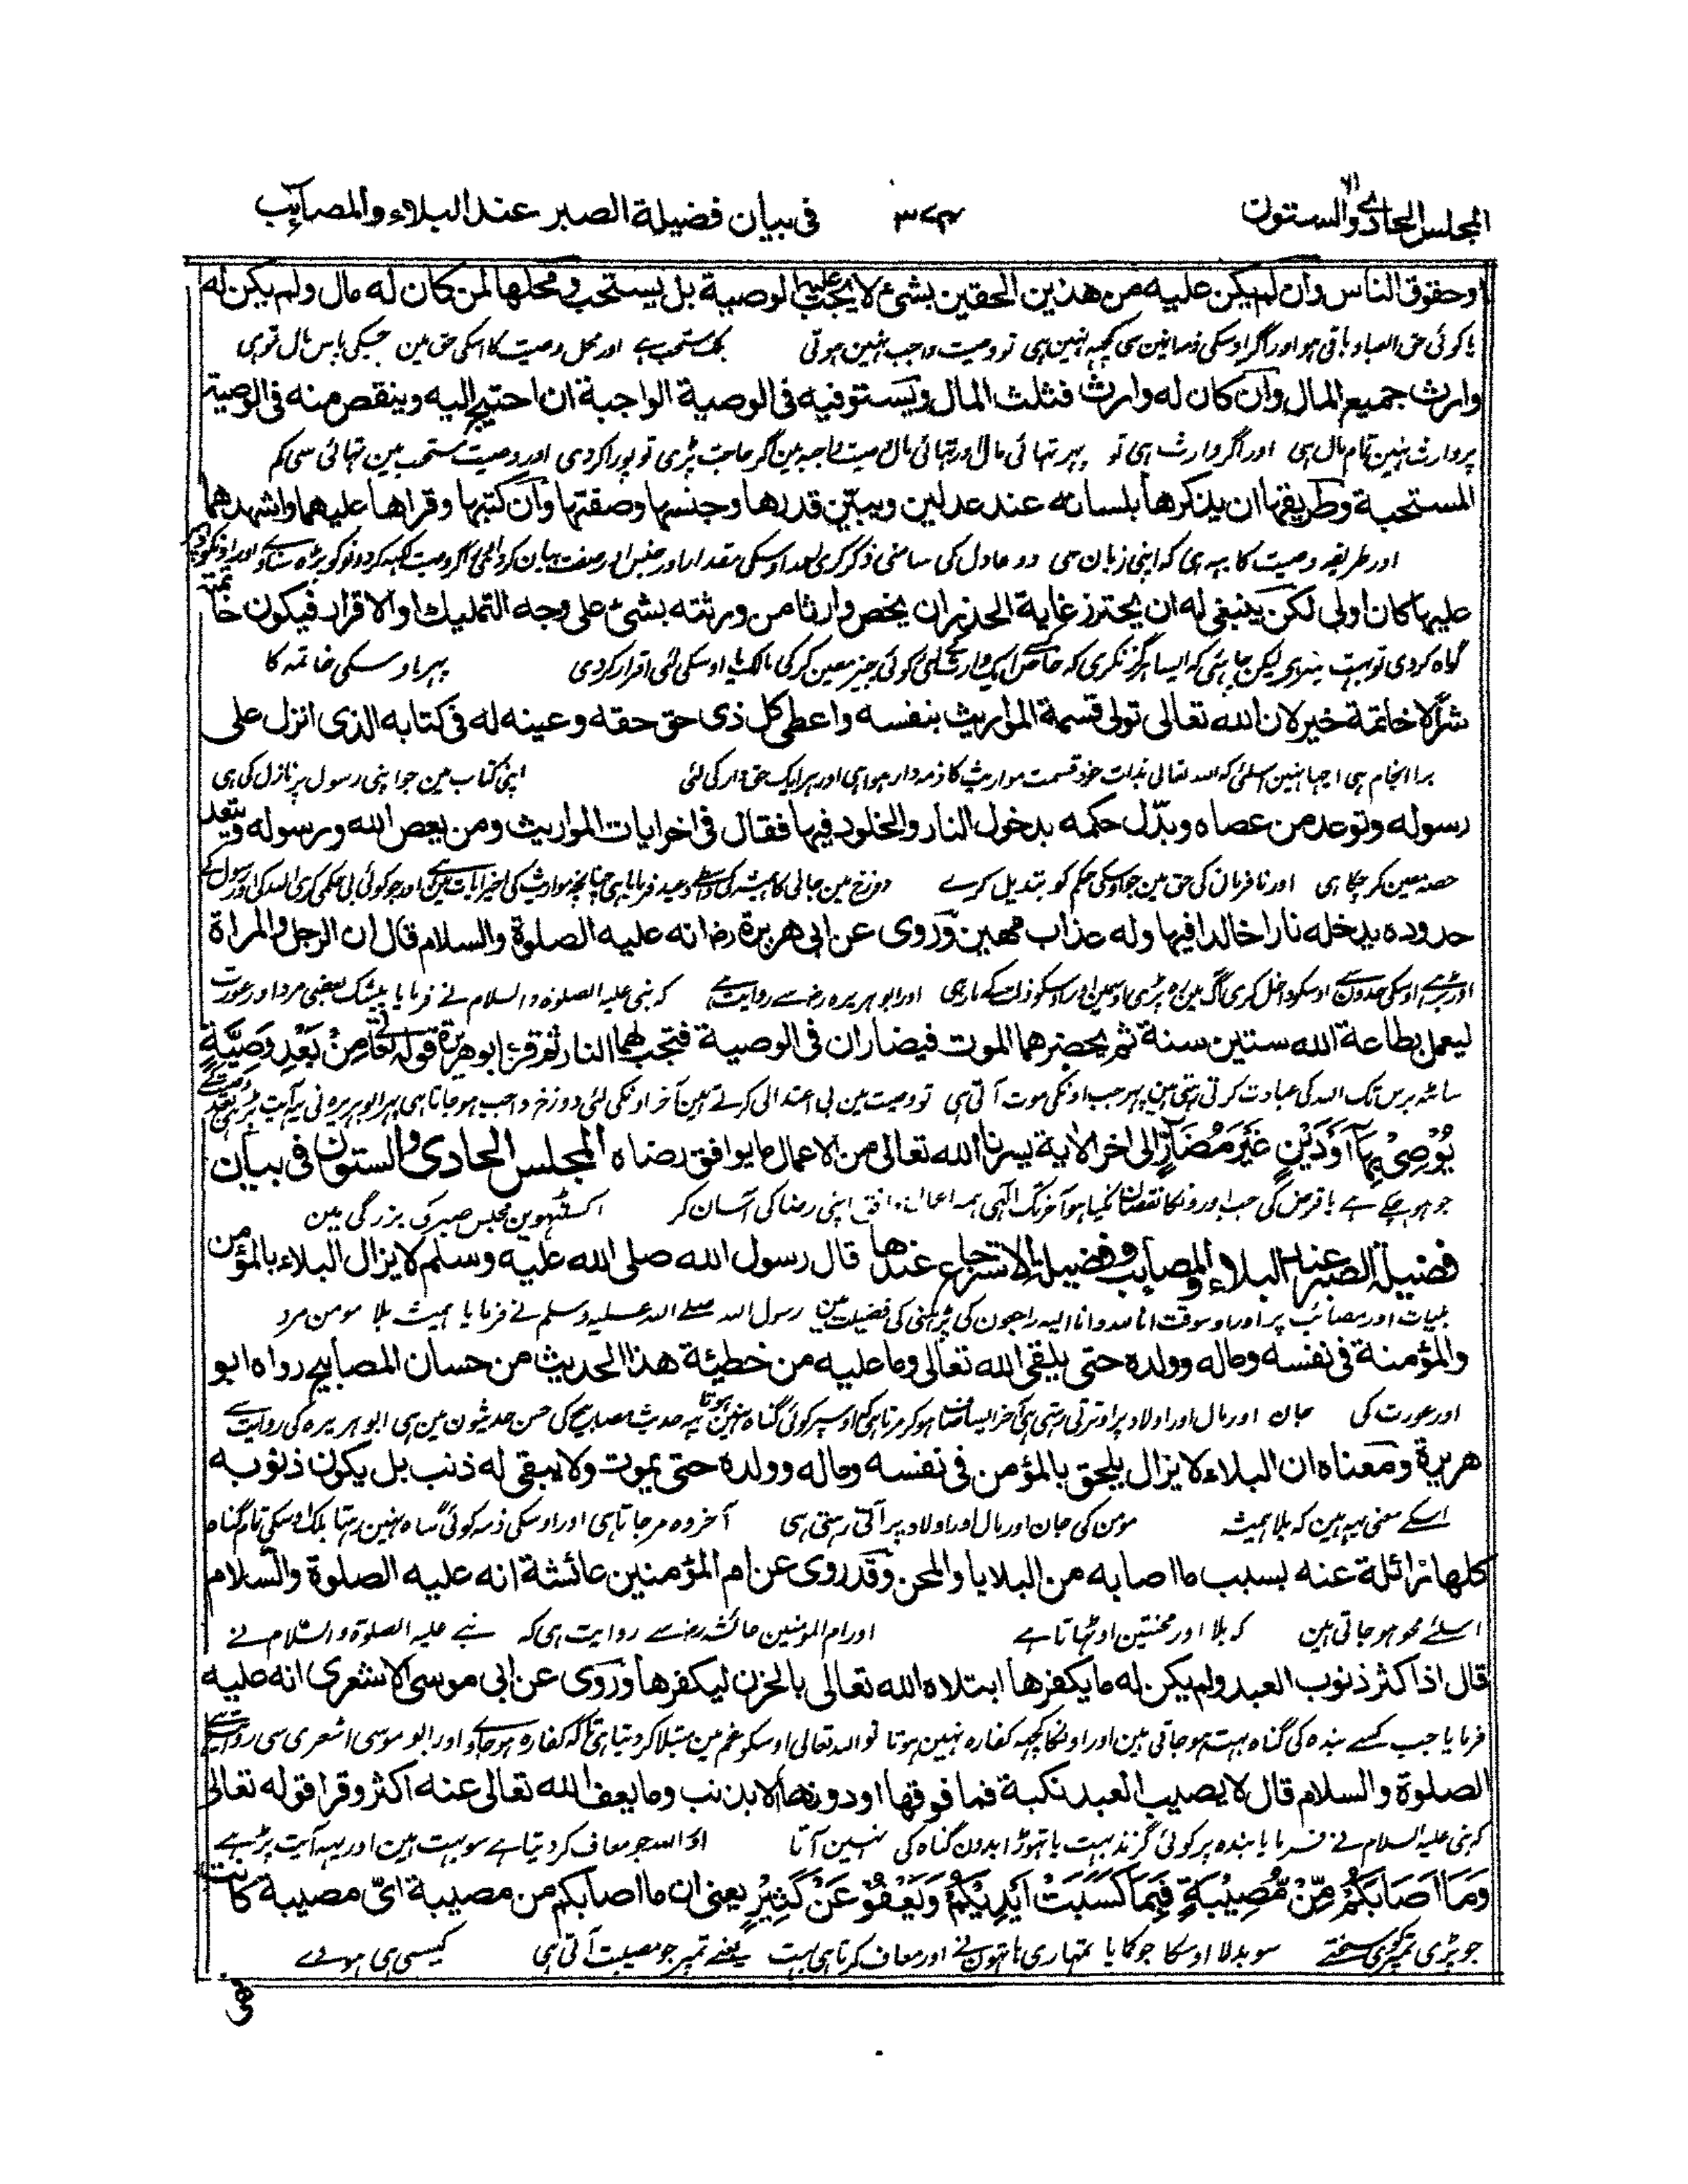 المجلس الحادي والستون ٣٧٤ فى بيان فضيلة الصبر عند البلاء والمصائب
اوحقوق الناس وان لم يكن عليه من هذين الحقين بشئ لا يجب عليه الوصية بل يستحب ومحلها لمن كان له مال ولم يكن له
یا کوئی حق العباد باقی ہو اور اگر اوسکی ذمہ انمین سی کچہہ نہین ہی تو وصیت واجب نہین ہوتی بلکہ مستحب ہے اور محل وصیت کا اسکی حق مین جسکی پاس مال تو ہی
وارث جميع المال وان كان له وارث فثلث المال ويستوفيه فى الوصية الواجبة ان احتيج اليه وينقص منه فى الوصية
پر وارث نہین تمام مال ہی اور اگر وارث ہی تو پہر تہائی مال اور تہائی مال وصیت واجبہ مین اگر حاجت پڑی تو پورا کردی اور وصیت مستحب مین تہائی سی کم
المستحبة وطريقها ان يذكرها بلسانه عند عدلين ويبيّن قدرها وجنسها وصفتها وان كتبها وقراها عليهما واشهدهما
اور طریقہ وصیت کا یہہ ہی کہ اپنی زبان سی دو عادل کی سامنی ذکر کری اور اوسکی مقدار اور جنس اور صفت بیان کردی اگر وصیت لکہہ کر دونوکو پڑہ سناوے اور اونکو
عليها كان اولى لكن ينبغى له ان يحترز غاية الحذر ان يخص وارثا من ورثته بشئ على وجه التمليك او الاقرار فيكون خاتمته
گواہ کردی تو بہت بہتر ہی لیکن چاہئی کہ ایسا ہرگز نکری کہ خاص ایک وارث کے لئی کوئی چیز معین کرکی مالک یا اوسکی لئی اقرار کردی پہر اوسکی خاتمہ کا
شرا لا خاتمة خير لان الله تعالى تولى قسمة المواريث بنفسه واعطى كل ذى حق حقه وعينه له فى كتابه الذى انزل على
برا انجام ہی اچہا نہین اسلئے کہ اللہ تعالی بذات خود قسمت مواریث کا ذمہ دار ہوا ہی اور ہر ایک حق دار کی لئی اپنی کتاب مین جو اپنی رسول پر نازل کی ہی
رسوله وتوعد من عصاه وبدّل حكمه بدخول النار والخلود فيها فقال فى اخر ايات المواريث ومن يعص الله ورسوله ويتعد
حصہ معین کرچکا ہی اور نافرمان کی حق مین جو اوسکی حکم کو تبدیل کرے دوزخ مین جانی کا ہمیشہ کی واسطے وعید فرمایا ہی چنانچہ مواریث کی اخیر آیات مین ہے اور جو کوئی بی حکمی کری اللہ کی اور رسول کے
حدوده يدخله نارا خالدا فيها وله عذاب مهين وروى عن ابى هريرة رض انه عليه الصلوة والسلام قال ان الرجل والمراة
اور بڑہے اوسکی حدون سے اوسکو داخل کری آگ مین رہ پڑی اوسمین اور اوسکو ذلت کے مار ہی اور ابو ہریرہ رض سے روایت ہے کہ نبی علیہ الصلوۃ والسلام نے فرمایا بیشک بعضی مرد اور عورت
ليعمل بطاعة الله ستين سنة ثم يحضرهما الموت فيضاران فى الوصية فتجب لهما النار ثم قرئ ابو هريرة قوله تعالى مِنْ بَعْدِ وَصِيَّةٍ
ساٹہہ برس تک اللہ کی عبادت کرتی رہتی ہین پہر جب اونکی موت آتی ہی تو وصیت مین بی اعتدالی کرتے ہین آخر اونکی لئی دوزخ واجب ہو جاتا ہی پہر ابو ہریرہ نی یہ آیت پڑہی بعد وصیت کے
يُوْصٰى بِهَا اَوْ دَيْنٍ غَيْرَ مُضَارٍّ الى اخر الاية يسرنا الله تعالى من الاعمال ما يوافق رضاه المجلس الحادى والستون فى بيان
جو ہو چکے ہے یا قرض کی جب اورونکا نقصان نکیا ہو آخر تک الہی ہمہ اعمال موافق اپنی رضا کی آسان کر اکسٹھوین مجلس صبر کی بزرگی مین
فضيلة الصبر عند البلاء والمصايب وفضيلة الاسترجاع عندها قال رسول الله صلى الله عليه وسلم لا يزال البلاء بالمؤمن
بلیات اور مصائب پر اور اوسوقت انا للہ وانا الیہ راجعون کی پڑہنی کی فضیلت مین رسول اللہ صلے اللہ علیہ وسلم نے فرمایا ہمیشہ بلا مومن مرد
والمؤمنة فى نفسه وماله وولده حتى يلقى الله تعالى وما عليه من خطيئة هذا الحديث من حسان المصابيح رواه ابو
اور عورت کی جان اور مال اور اولاد پر اوترتی رہتی ہی آخر ایسا صاف ہوکر مرتا ہی کہ اوسپر کوئی گناہ نہین ہوتا یہہ حدیث مصابیح کی حسن حدیثون مین ہی ابو ہریرہ کی روایت سے
هريرة ومعناه ان البلاء لا يزال يلحق بالمؤمن فى نفسه وماله وولده حتى يموت ولا يبقى له ذنب بل يكون ذنوبه
اسکے معنی یہہ ہین کہ بلا ہمیشہ مومن کی جان اور مال اور اولاد پر آتی رہتی ہی آخر وہ مرجاتا ہی اور اوسکی ذمہ کوئی گناہ نہین رہتا بلکہ اوسکی تمام گناہ
كلها زائلة عنه بسبب ما اصابه من البلايا والمحن وقد روى عن ام المؤمنين عائشة انه عليه الصلوة والسلام
اسلئے محو ہو جاتی ہین کہ بلا اور محنتین اوٹہاتا ہے اور ام المومنین عائشہ رض سے روایت ہی کہ نبے علیہ الصلوۃ والسّلام نے
قال اذا كثر ذنوب العبد ولم يكن له ما يكفرها ابتلاه الله تعالى بالحزن ليكفرها وروى عن ابى موسى الاشعرى انه عليه
فرمایا جب کسے بندہ کی گناہ بہت ہو جاتی ہین اور اونکا کچہہ کفارہ نہین ہوتا تو اللہ تعالی اوسکو غم مین مبتلا کر دیتا ہی تاکہ کفارہ ہو جاوے اور ابو موسی اشعری سی روایت ہے
الصلوة والسلام قال لا يصيب العبد نكبة فما فوقها او دونها الا بذنب وما يعفو الله تعالى عنه اكثر وقرا قوله تعالى
کہ نبی علیہ السلام نے فرمایا بندہ پر کوئی گزند بہت یا تہوڑا بدون گناہ کی نہین آتا اور اللہ جو معاف کر دیتا ہے سو بہت ہین اور یہہ آیت پڑہے
وَمَا اَصَابَكُمْ مِّنْ مُّصِيْبَةٍ فَبِمَا كَسَبَتْ اَيْدِيْكُمْ وَيَعْفُوْ عَنْ كَثِيْرٍ يعنى ان ما اصابكم من مصيبة اىّ مصيبة كانت
جو پڑی تمپر کوئی سختے سو بدلا اوسکا جو کمایا تمہاری ہاتہون نے اور معاف کرتا ہی بہت یعنے تمپر جو مصیبت آتی ہی کیسی ہی ہووے
فهى